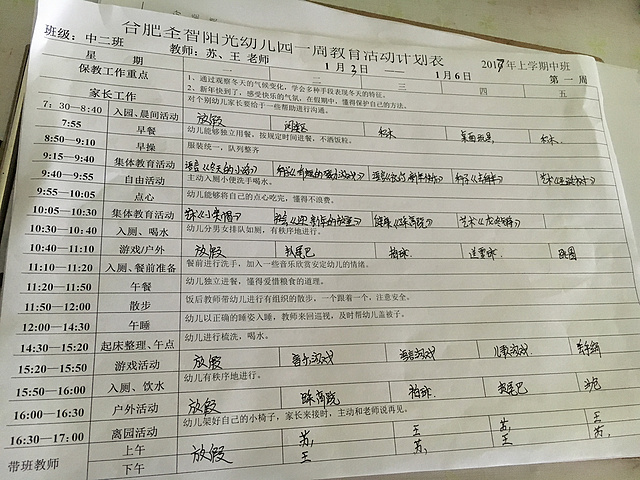 合肥全智阳光幼儿园一周教育活动计划表
班级：中二班 教师：苏、王 老师 1月3日——1月6日 2017年上学期中班
星 期 二 三 四 五 第 一 周
保教工作重点 1、通过观察冬天的气候变化，学会多种手段表现冬天的特征。
2、新年快到了，感受快乐的气氛，在假期中，懂得保护自己的方法。
家长工作 对个别幼儿家长要给于一些帮助进行沟通。
7：30—8:40 入园、晨间活动 放假 积木 桌面玩具 积木
7:55 早餐 幼儿能够独立用餐，按规定时间进餐，不洒饭粒。
8:50—9:10 早操 服装统一，队列整齐
9:15—9:40 集体教育活动 语言《冬天的小路》
9:40—9:55 自由活动 主动入厕小便洗手喝水。
9:55—10:05 点心 幼儿能够将自己的点心吃完，懂得不浪费。
10:05—10:30 集体教育活动
10:30—10:40 入厕、喝水 幼儿分男女排队如厕，有秩序地进行。
10:40—11:10 游戏/户外 放假 揪尾巴 拍球
11:10—11:20 入厕、餐前准备 餐前进行洗手，加入一些音乐欣赏安定幼儿的情绪。
11:20—11:50 午餐 幼儿独立进餐，懂得爱惜粮食的道理。
11:50—12:00 散步 饭后教师带幼儿进行有组织的散步，一个跟着一个，注意安全。
12:00—14:30 午睡 幼儿以正确的睡姿入睡，教师来回巡视，及时帮幼儿盖被子。
14:30—15:20 起床整理、午点 幼儿进行梳洗，喝水。
15:20—15:50 游戏活动 放假 音乐游戏 语言游戏 儿歌游戏
15:50—16:00 入厕、饮水 幼儿有秩序地进行。
16:00—16:30 户外活动 放假 踩高跷 拍球 揪尾巴 沙包
16:30—17:00 离园活动 幼儿架好自己的小椅子，家长来接时，主动和老师说再见。
带班教师 上午 放假 苏 王 苏 王
下午 王 苏 王 苏